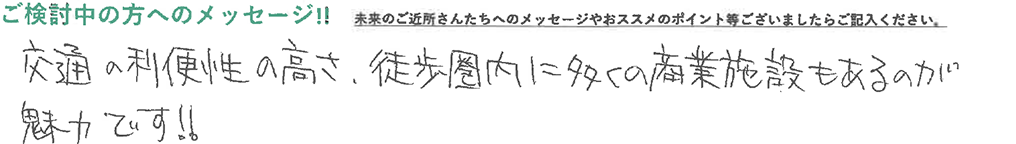 ご検討中の方へのメッセージ!!
未来のご近所さんたちへのメッセージやおススメのポイント等ございましたらご記入ください。
交通の利便性の高さ、徒歩圏内に多くの商業施設もあるのが
魅力です!!